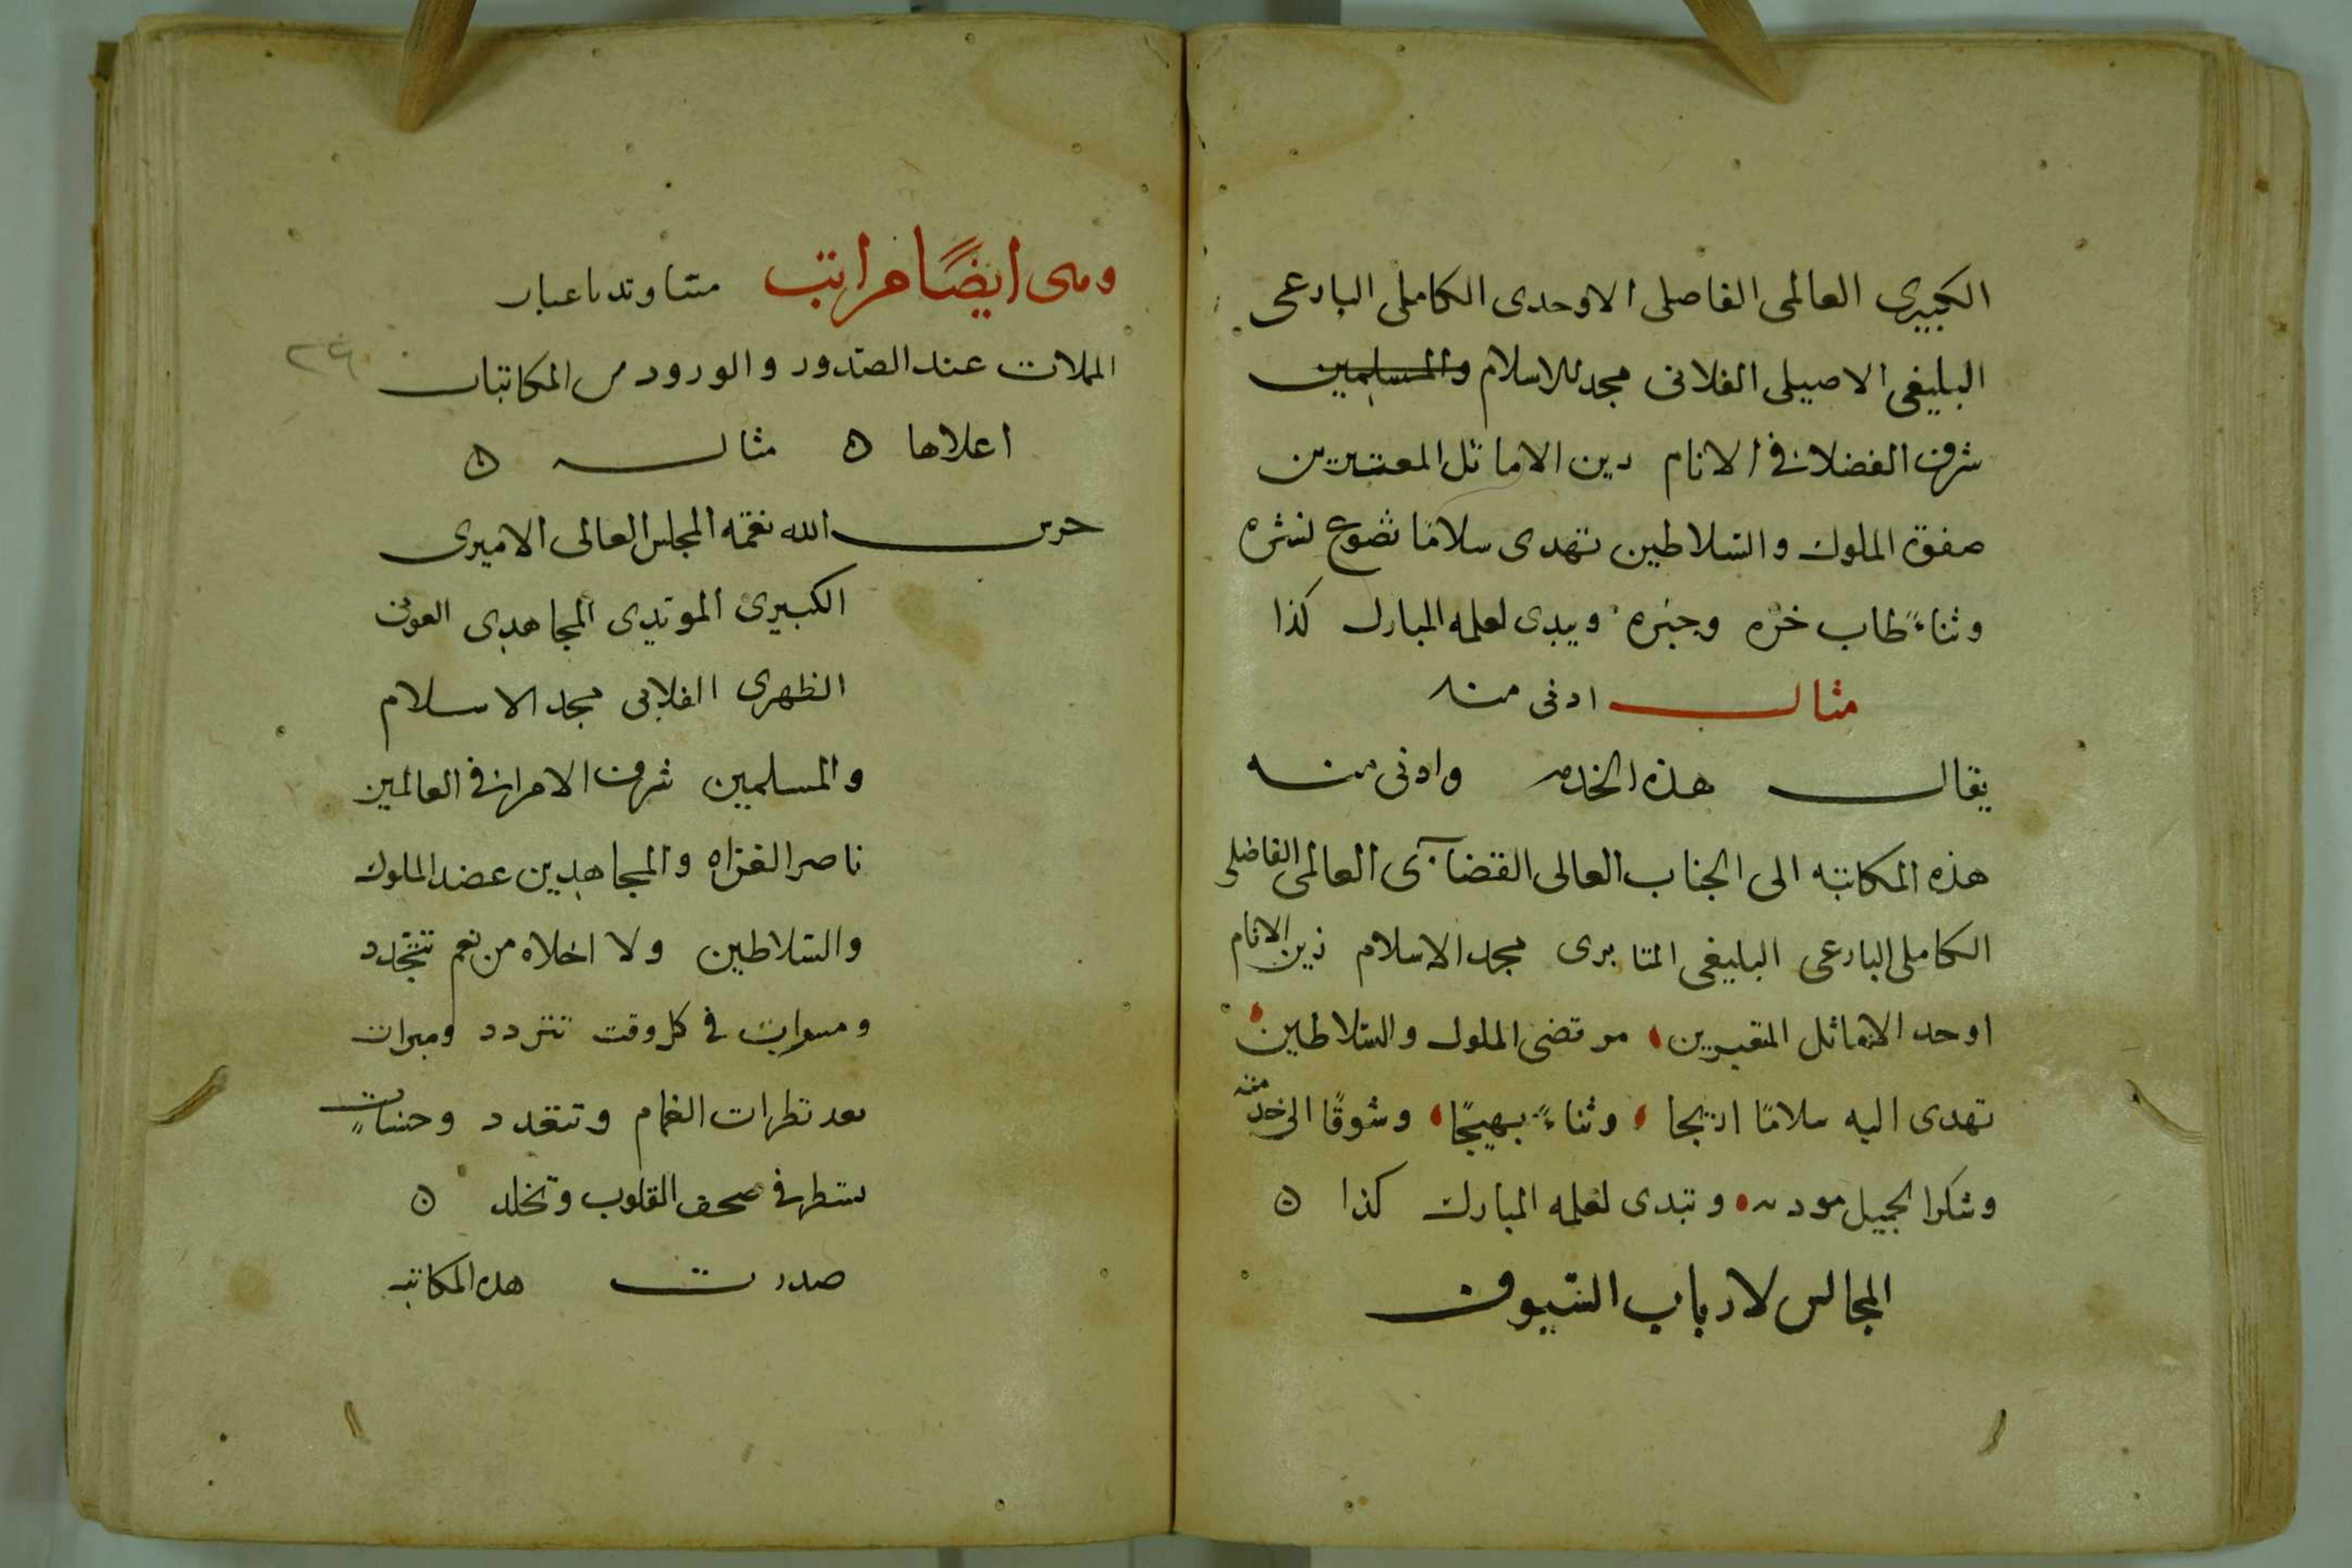 الكبيرى العالمى الفاضلى الاوحدى الكاملى البارعى
البليغى الاصيلى الفلانى مجد الاسلام والمسلمين
شرف الفضلا فى الانام زين الاماثل المعتبرين
صفوة الملوك والسلاطين تهدى سلامًا تضوع نشره
وثناءً طاب خبره ويبدى لعلمه المبارك كذا
مثال ادنى منه
يقال هذه الخدمه وادنى منه
هذه المكاتبه الى الجناب العالى القضآئى العالمى الفاضلى
الكاملى البارعى البليغى مجد الاسلام زين الانام
اوحد الاماثل المعتبرين مرتضى الملوك والسلاطين
تهدى اليه سلامًا اريجا وثناءً بهيجًا وشوقًا الى خدمته
وشكرا لجميل مودته وتبدى لعلمه المبارك كذا ه
المجالس لارباب السيوف
وهى ايضًا مراتب متفاوته باعتبار
عند الصدور والورود من المكاتبات
اعلاها ه مثاله ه
حرس الله نعمة المجلس العالى الاميرى
الكبيرى المؤيدى المجاهدى العونى
الظهيرى الفلانى مجد الاسلام
والمسلمين شرف الامرا فى العالمين
ناصر الغزاه والمجاهدين عضد الملوك
والسلاطين ولا اخلاه من نعم تتجدد
ومسرات فى كل وقت تتردد ومبرات
تعد قطرات الغمام وتتعدد وحسنات
تسطر فى صحف القلوب وتخلد ه
صدرت هذه المكاتبه